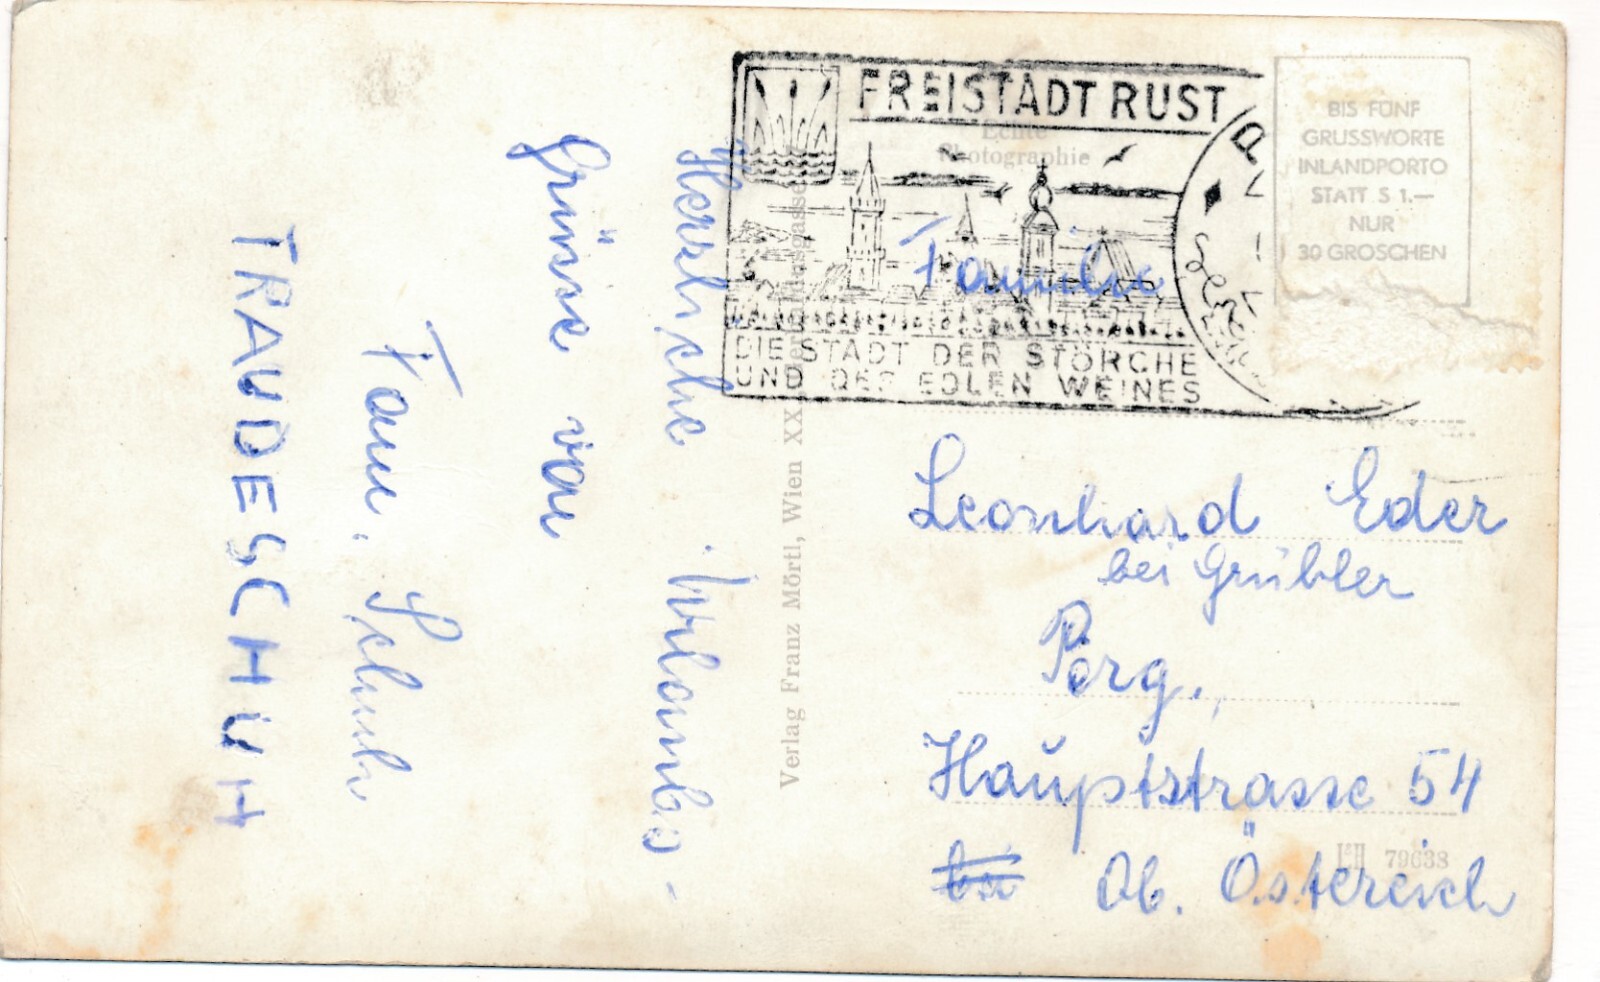 Herzliche Urlaubs-
Grüsse von
Fam. Schuh
TRAUDE SCHUH
Verlag Franz Mörtl, Wien XX
Echte
Photographie
FREISTADT RUST
DIE STADT DER STÖRCHE
UND DES EDLEN WEINES
BIS FÜNF
GRUSSWORTE
INLANDPORTO
STATT S 1.—
NUR
30 GROSCHEN
Familie
Leonhard Eder
bei Grübler
Perg,
Hauptstrasse 54
Ob. Östereich
79638